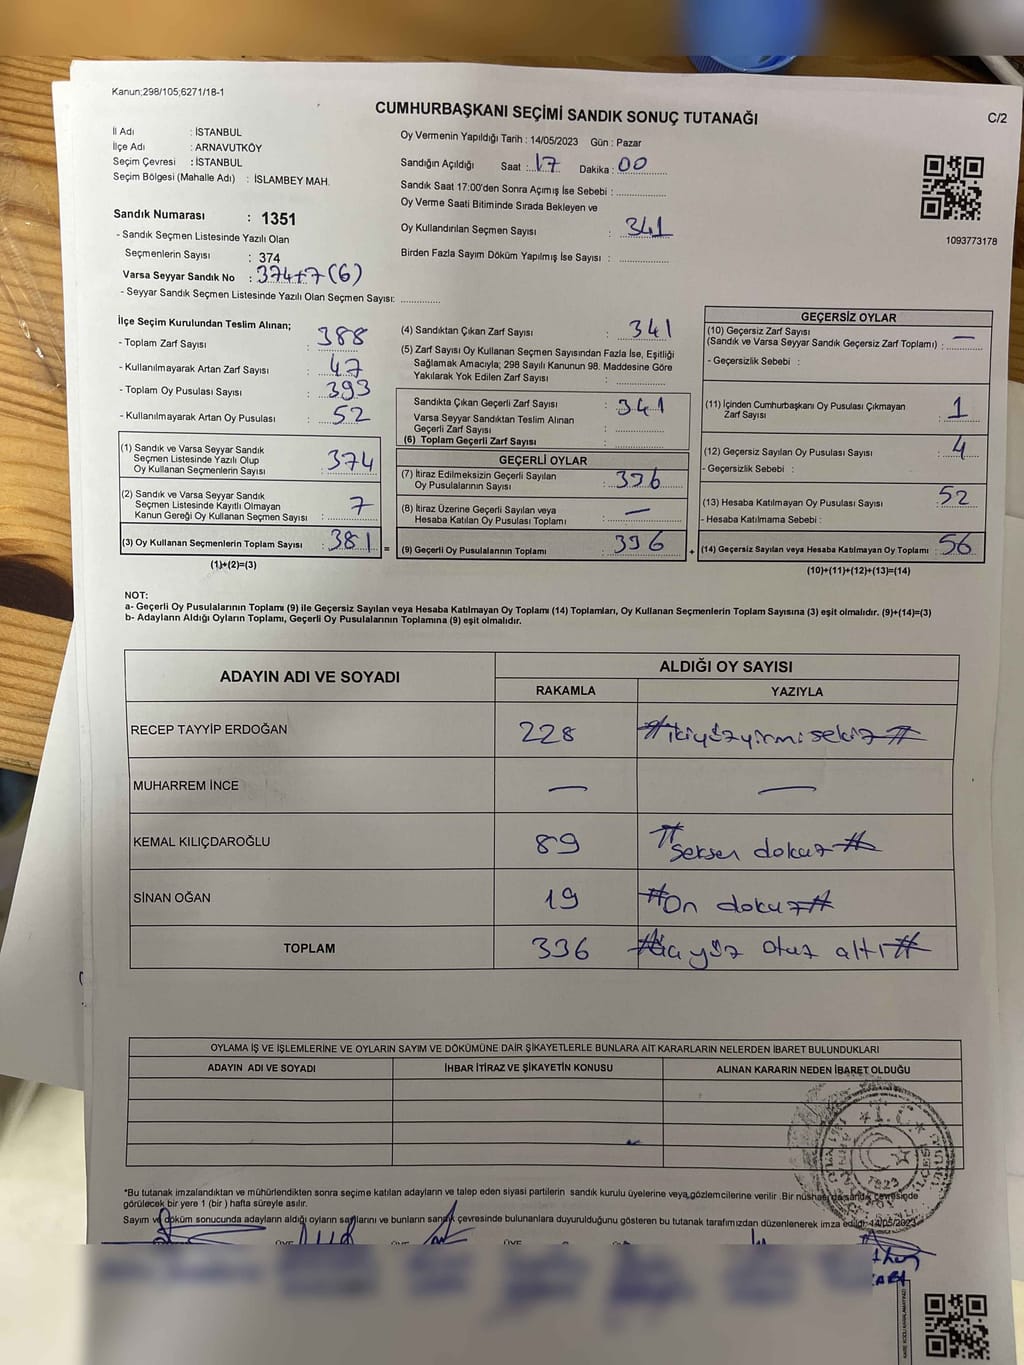 Kanun;298/105;6271/18-1
CUMHURBAŞKANI SEÇİMİ SANDIK SONUÇ TUTANAĞI
C/2
İl Adı : İSTANBUL
İlçe Adı : ARNAVUTKÖY
Seçim Çevresi : İSTANBUL
Seçim Bölgesi (Mahalle Adı) : İSLAMBEY MAH.
Sandık Numarası : 1351
- Sandık Seçmen Listesinde Yazılı Olan
Seçmenlerin Sayısı : 374
Varsa Seyyar Sandık No : 374+7(6)
- Seyyar Sandık Seçmen Listesinde Yazılı Olan Seçmen Sayısı: ............
Oy Vermenin Yapıldığı Tarih : 14/05/2023 Gün : Pazar
Sandığın Açıldığı Saat : 17 Dakika : 00
Sandık Saat 17:00'den Sonra Açımış İse Sebebi : ............
Oy Verme Saati Bitiminde Sırada Bekleyen ve
Oy Kullandırılan Seçmen Sayısı : 341
Birden Fazla Sayım Döküm Yapılmış İse Sayısı : ............
1093773178
İlçe Seçim Kurulundan Teslim Alınan;
- Toplam Zarf Sayısı : 388
- Kullanılmayarak Artan Zarf Sayısı : 47
- Toplam Oy Pusulası Sayısı : 393
- Kullanılmayarak Artan Oy Pusulası : 52
(1) Sandık ve Varsa Seyyar Sandık
Seçmen Listesinde Yazılı Olup
Oy Kullanan Seçmenlerin Sayısı : 374
(2) Sandık ve Varsa Seyyar Sandık
Seçmen Listesinde Kayıtlı Olmayan
Kanun Gereği Oy Kullanan Seçmen Sayısı : 7
(3) Oy Kullanan Seçmenlerin Toplam Sayısı : 381 =
(1)+(2)=(3)
(4) Sandıktan Çıkan Zarf Sayısı : 341
(5) Zarf Sayısı Oy Kullanan Seçmen Sayısından Fazla İse, Eşitliği
Sağlamak Amacıyla; 298 Sayılı Kanunun 98. Maddesine Göre
Yakılarak Yok Edilen Zarf Sayısı : ............
Sandıkta Çıkan Geçerli Zarf Sayısı : 341
Varsa Seyyar Sandıktan Teslim Alınan
Geçerli Zarf Sayısı : ............
(6) Toplam Geçerli Zarf Sayısı : ............
GEÇERLİ OYLAR
(7) İtiraz Edilmeksizin Geçerli Sayılan
Oy Pusulalarının Sayısı : 336
(8) İtiraz Üzerine Geçerli Sayılan veya
Hesaba Katılan Oy Pusulası Toplamı : —
(9) Geçerli Oy Pusulalarının Toplamı : 336 +
GEÇERSİZ OYLAR
(10) Geçersiz Zarf Sayısı
(Sandık ve Varsa Seyyar Sandık Geçersiz Zarf Toplamı) : —
- Geçersizlik Sebebi :
(11) İçinden Cumhurbaşkanı Oy Pusulası Çıkmayan
Zarf Sayısı : 1
(12) Geçersiz Sayılan Oy Pusulası Sayısı : 4
- Geçersizlik Sebebi :
(13) Hesaba Katılmayan Oy Pusulası Sayısı 52
- Hesaba Katılmama Sebebi :
(14) Geçersiz Sayılan veya Hesaba Katılmayan Oy Toplamı : 56
(10)+(11)+(12)+(13)=(14)
NOT:
a- Geçerli Oy Pusulalarının Toplamı (9) ile Geçersiz Sayılan veya Hesaba Katılmayan Oy Toplamı (14) Toplamları, Oy Kullanan Seçmenlerin Toplam Sayısına (3) eşit olmalıdır. (9)+(14)=(3)
b- Adayların Aldığı Oyların Toplamı, Geçerli Oy Pusulalarının Toplamına (9) eşit olmalıdır.
ADAYIN ADI VE SOYADI ALDIĞI OY SAYISI
RAKAMLA YAZIYLA
RECEP TAYYİP ERDOĞAN 228 #ikiyüzyirmi sekiz#
MUHARREM İNCE — —
KEMAL KILIÇDAROĞLU 89 #seksen dokuz#
SİNAN OĞAN 19 #On dokuz#
TOPLAM 336 yüz otuz altı#
OYLAMA İŞ VE İŞLEMLERİNE VE OYLARIN SAYIM VE DÖKÜMÜNE DAİR ŞİKAYETLERLE BUNLARA AİT KARARLARIN NELERDEN İBARET BULUNDUKLARI
ADAYIN ADI VE SOYADI İHBAR İTİRAZ VE ŞİKAYETİN KONUSU ALINAN KARARIN NEDEN İBARET OLDUĞU
T.C.
1923
*Bu tutanak imzalandıktan ve mühürlendikten sonra seçime katılan adayların ve talep eden siyasi partilerin sandık kurulu üyelerine veya gözlemcilerine verilir .Bir nüshası da sandık çevresinde
görülecek bir yere 1 (bir ) hafta süreyle asılır.
Sayım ve döküm sonucunda adayların aldığı oyların sayılarını ve bunların sandık çevresinde bulunanlara duyurulduğunu gösteren bu tutanak tarafımızdan düzenlenerek imza edildi.14/05/2023